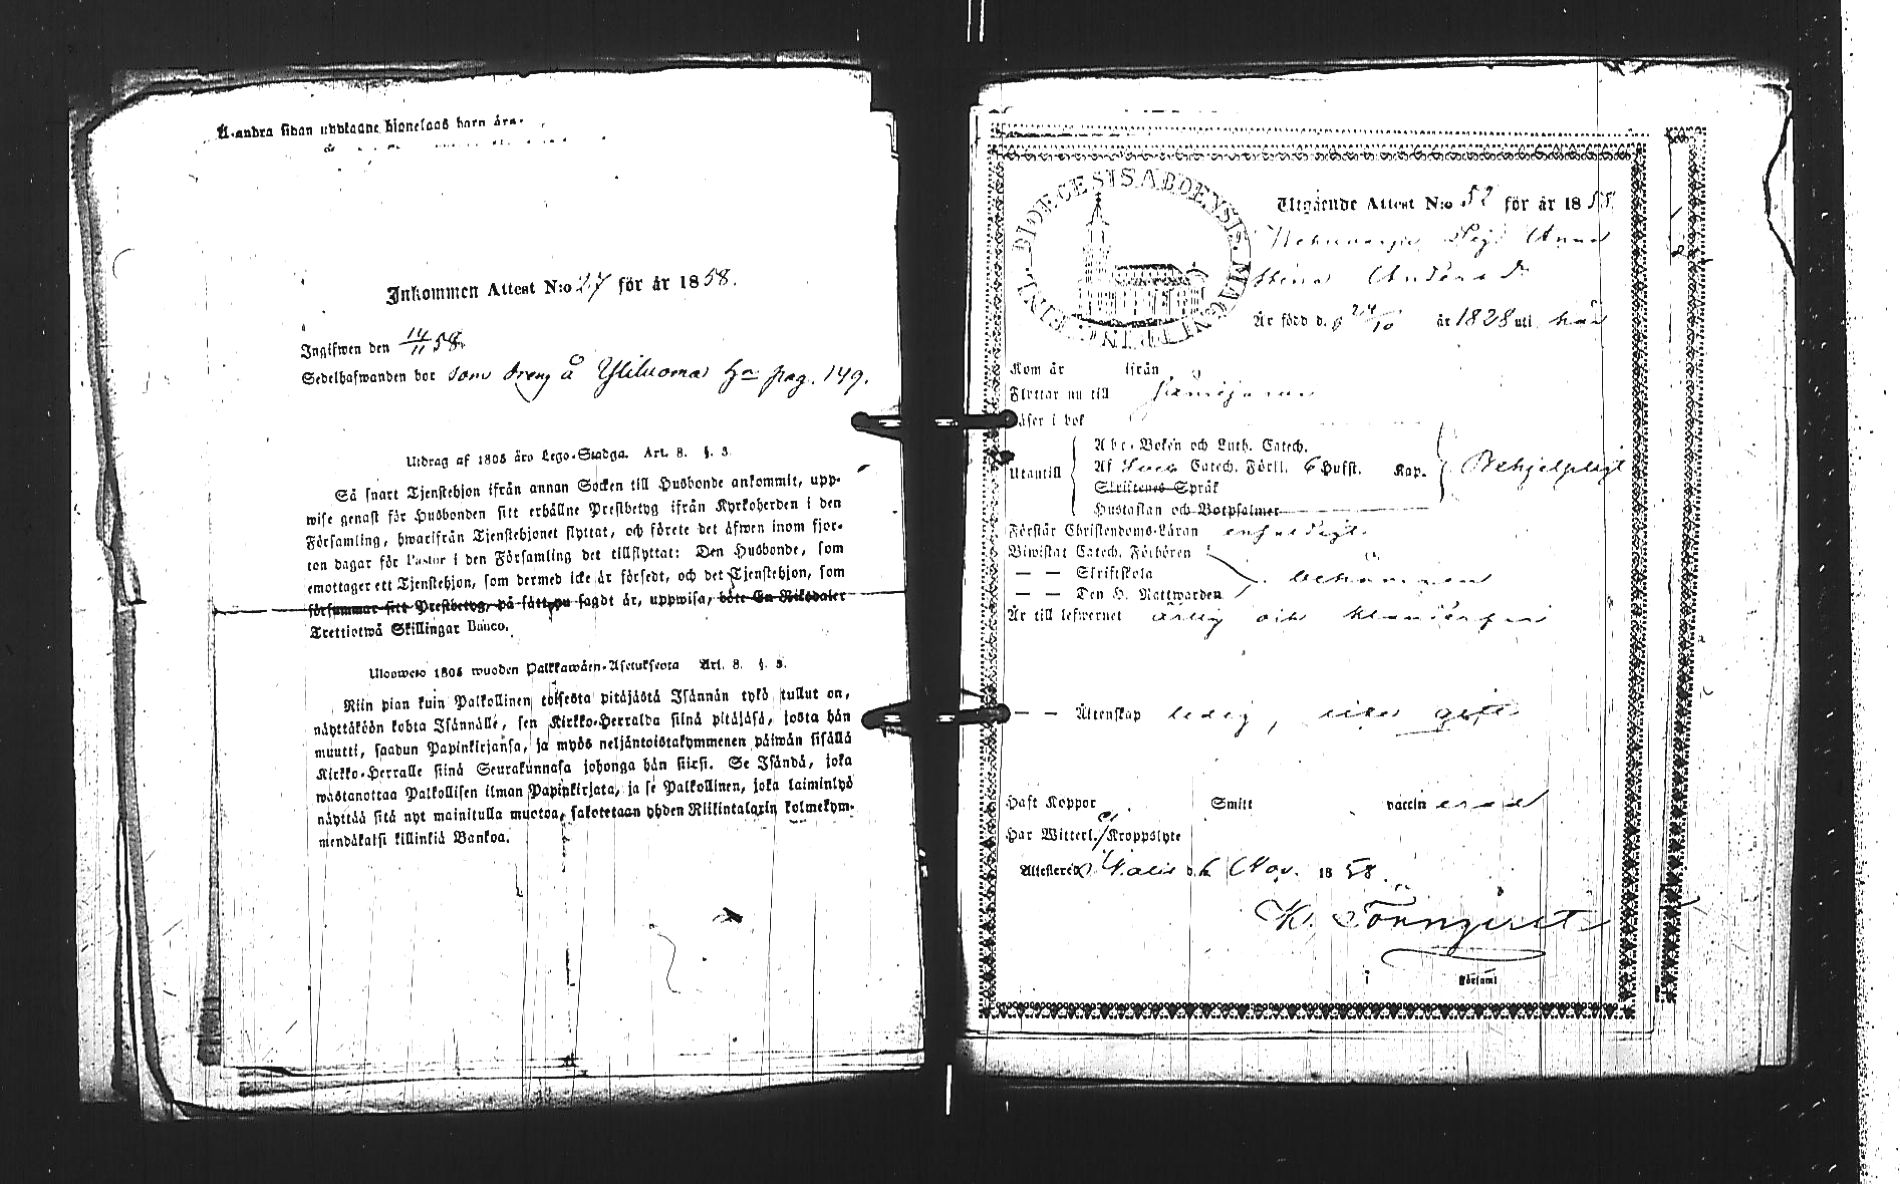 Å andra sidan upptagne hionelaos barn äro.
Inkommen Attest N:o 27 för år 1858.
Ingifwen den 14/11 58.
Sedelhafwanden bor som dreng å Yliluoma Hn pag. 149.
Utdrag af 1805 års Lego-Stadga. Art. 8. §. 3.
Så snart Tjenstehjon ifrån annan Socken till Husbonde ankommit, upp-
wise genast för Husbonden sitt erhållne Prestbetyg ifrån Kyrkoherden i den
Församling, hwarifrån Tjenstehjonet flyttat, och förete det äfwen inom fjor-
ton dagar för Pastor i den Församling det tillflyttat: Den Husbonde, som
emottager ett Tjenstehjon, som dermed icke är försedt, och det Tjenstehjon, som
försummar sitt Prestbetyg, på sätt nu sagdt är, uppwisa, böte En Riksdaler
Trettiotwå Skillingar Banco.
Ulosweto 1805 wuoden Palkkawäen-Asetuksesta Art. 8. §. 3.
Niin pian kuin Palkollinen toisesta pitäjästä Isännän tykö tullut on,
näyttäköön kohta Isännälle, sen Kirkko-Herralda siinä pitäjäsä, josta hän
muutti, saadun Papinkirjansa, ja myös neljäntoistakymmenen päiwän sisällä
Kirkko-Herralle siinä Seurakunnasa johonga hän siirsi. Se Isändä, joka
wastanottaa Palkollisen ilman Papinkirjata, ja se Palkollinen, joka laiminlyö
näyttää sitä nyt mainitulla muotoa, sakotetaan yhden Riikintalarin kolmekym-
mendäkaksi killinkiä Bankoa.
DIOECESIS ABOENSIS. MAGNI PRINC. FINL.
Utgående Attest N:o 52 för år 1858
Pig. Anna
Stina Anders dr
Är född d. 24/10 år 1828 uti här
Kom år ifrån
Flyttar nu till
Läser i bok
Utantill
Abc-Boken och Luth. Catech.
Af Sveb Catech. Förkl. 6 Hufst. Kap. Behjelpligt
Skriftenes Språk
Hustaflan och Botpsalmer
Förstår Christendoms-Läran enfaldigt
Biwistat Catech. Förhören
— — Skriftskola
— — Den H. Nattwarden
Är till lefwernet ärlig och
— — Äktenskap ledig, icke gift
Haft Koppor Smitt vaccin
Har Witterl. Kroppslyte
Attesterar d. 6 Nov. 1858.
K. Tönnqvist
i Församl